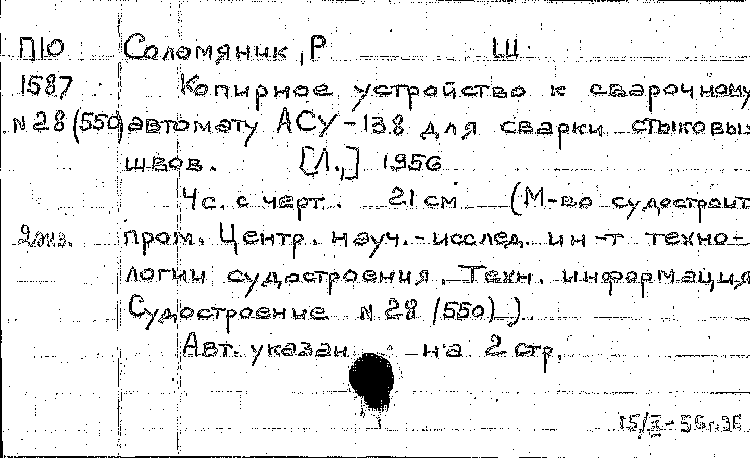 П10 Соломяник, Р Ш
1587 Копирное устройство к сварочному
N28(550) автомату АСУ-138 для сварки стыковых
швов. [Л.,] 1956
4с. с черт. 21 см (М-во судостроит
2экз. пром. Центр. науч.-исслед. ин-т техно-
логии судостроения. Техн. информация
Судостроение N28 (550)).
Авт. указан на 2 стр.